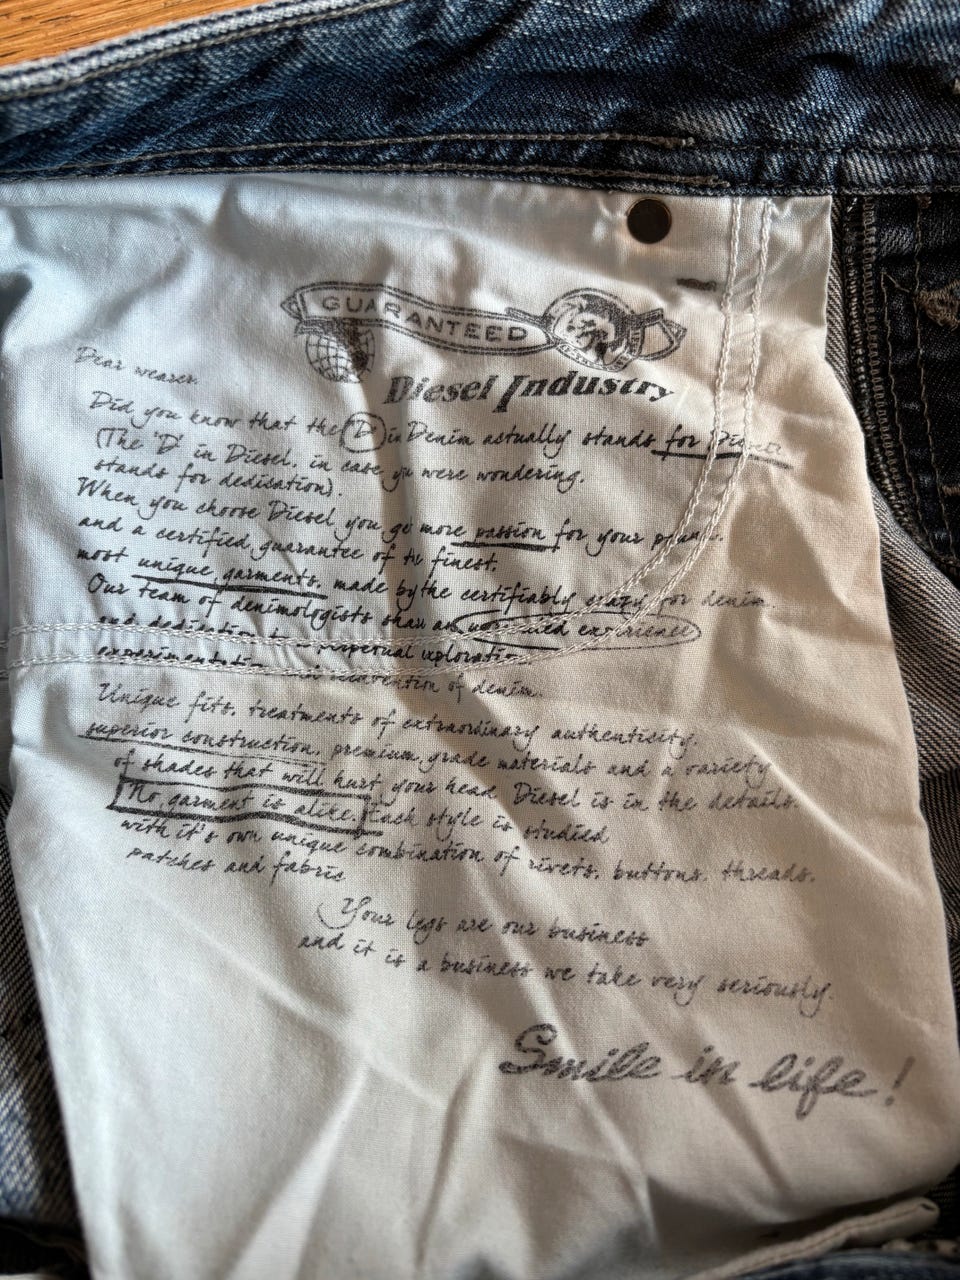 GUARANTEED
Diesel Industry
Dear wearer.
Did you know that the "D" in Denim actually stands for Diesel?
(The 'D' in Diesel, in case you were wondering,
stands for dedication).
When you choose Diesel, you get more passion for your
and a certified guarantee of the finest,
most unique garments, made by the certifiably crazy for denim.
Our team of denimologists share an experience
and dedication to perpetual exploration,
experimentation and reinvention of denim.
Unique fits, treatments of extraordinary authenticity,
superior construction, premium grade materials and a variety
of shades that will hurt your head. Diesel is in the details.
No garment is alike. Each style is studied
with it's own unique combination of rivets, buttons, threads,
patches and fabric
Your legs are our business
and it is a business we take very seriously.
Smile in life!